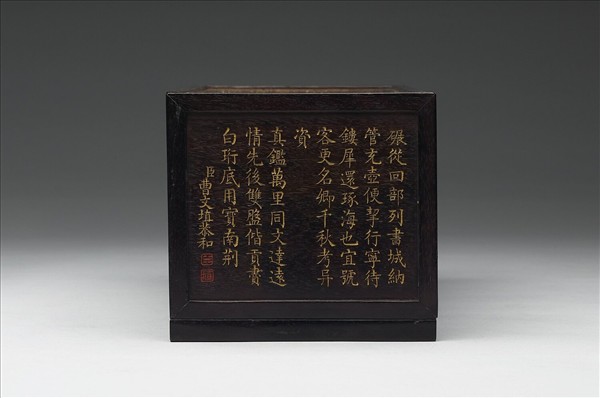 碾從回部列書城納
管充壺便挈行寧待
鏤犀還琢海也宜號
客更名卿千秋考异
資
真鑑萬里同文達遠
情先後雙盤偕貢書
白珩底用寶南荆
臣曹文埴恭和